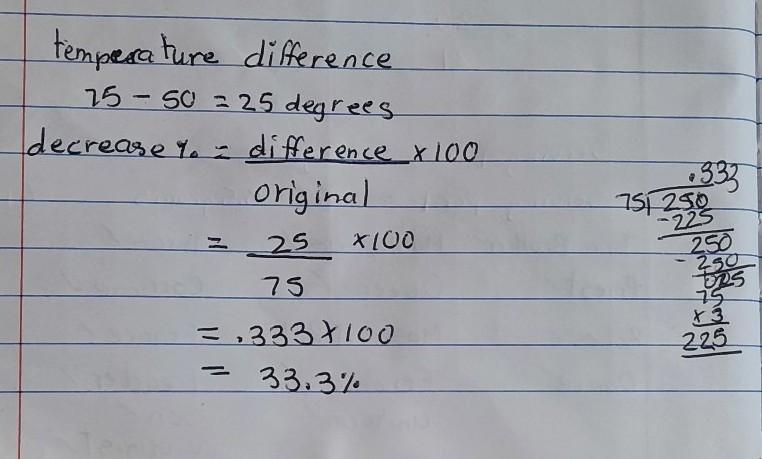 temperature difference
75 - 50 = 25 degrees
decrease % = difference × 100
original
= 25 × 100
75
= .333 × 100
= 33.3%
.333
75 250
-225
250
- 250
025
75
× 3
225